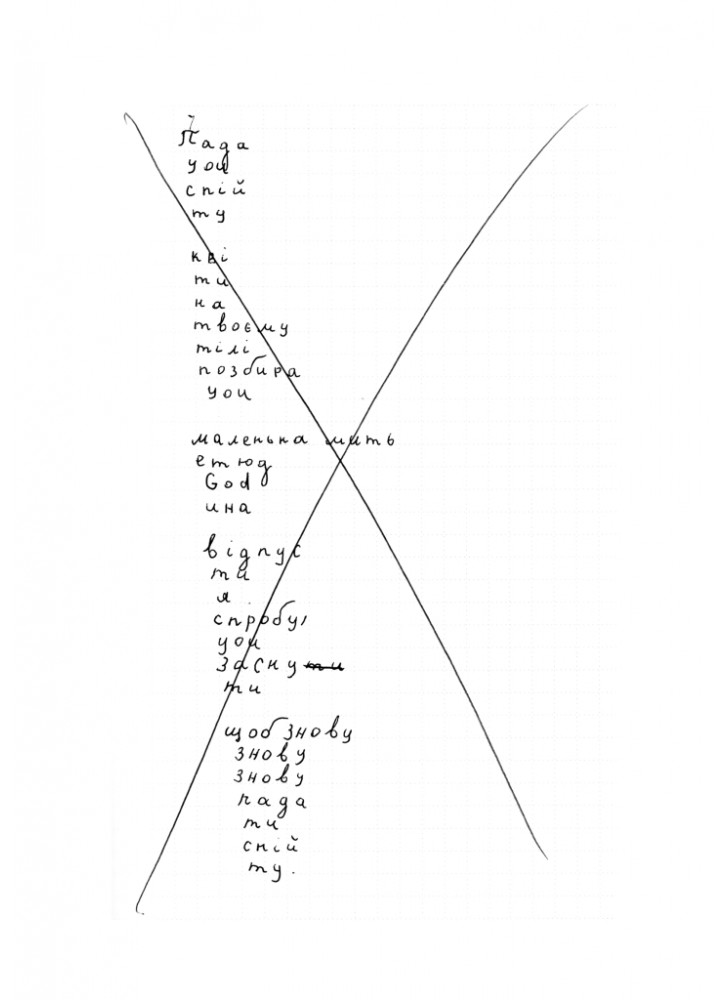 Пада
you
спій
ту
кві
ти
на
твоєму
тілі
позбира
you
маленька мить
етюд
God
ина
відпус
ти
я
спробу
you
засну ти
ти
щоб знову
знову
знову
пада
ти
спій
ту.